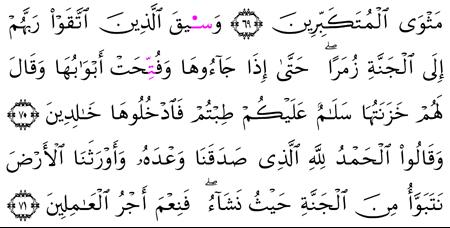 مَثْوَى ٱلْمُتَكَبِّرِينَ ﴿٦٩﴾ وَسِيقَ ٱلَّذِينَ ٱتَّقَوْا۟ رَبَّهُمْ
إِلَى ٱلْجَنَّةِ زُمَرًا ۖ حَتَّىٰٓ إِذَا جَآءُوهَا وَفُتِّحَتْ أَبْوَٰبُهَا وَقَالَ
لَهُمْ خَزَنَتُهَا سَلَٰمٌ عَلَيْكُمْ طِبْتُمْ فَٱدْخُلُوهَا خَٰلِدِينَ ﴿٧٠﴾
وَقَالُوا۟ ٱلْحَمْدُ لِلَّهِ ٱلَّذِى صَدَقَنَا وَعْدَهُۥ وَأَوْرَثَنَا ٱلْأَرْضَ
نَتَبَوَّأُ مِنَ ٱلْجَنَّةِ حَيْثُ نَشَآءُ ۖ فَنِعْمَ أَجْرُ ٱلْعَٰمِلِينَ ﴿٧١﴾